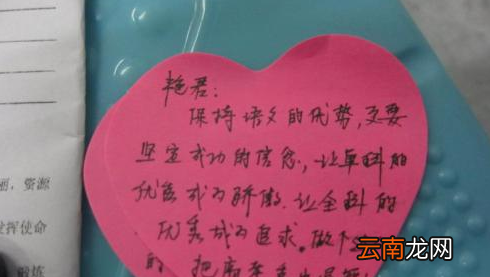 艳君：
保持语文的优势，更要
坚定成功的信念，让单科的
优秀成为骄傲，让全科的
优秀成为追求。做
的 把
丽，资源
发挥使命
的炼
云南龙网